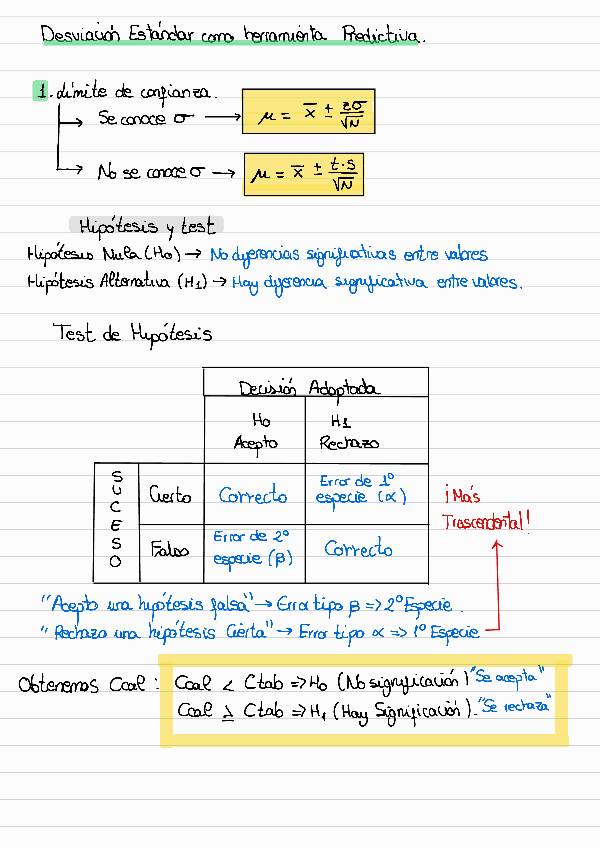 Desviación Estándar como herramienta Predictiva.
1. Límite de confianza.
Se conoce σ → μ = x̄ ± zσ/√N
No se conoce σ → μ = x̄ ± t·s/√N
Hipótesis y test
Hipótesis Nula (H0) → No diferencias significativas entre valores
Hipótesis Alternativa (H1) → Hay diferencia significativa entre valores.
Test de Hipótesis
Decisión Adoptada
H0 H1
Acepto Rechazo
SUCESO
Cierto Correcto Error de 1º especie (α)
Falso Error de 2º especie (β) Correcto
¡Más Trascendental!
"Acepto una hipótesis falsa" → Error tipo β => 2º Especie.
"Rechazo una hipótesis Cierta" → Error tipo α => 1º Especie
Obtenemos Ccal: Ccal < Ctab => H0 (No significación) "Se acepta"
Ccal ≥ Ctab => H1 (Hay Significación). "Se rechaza"